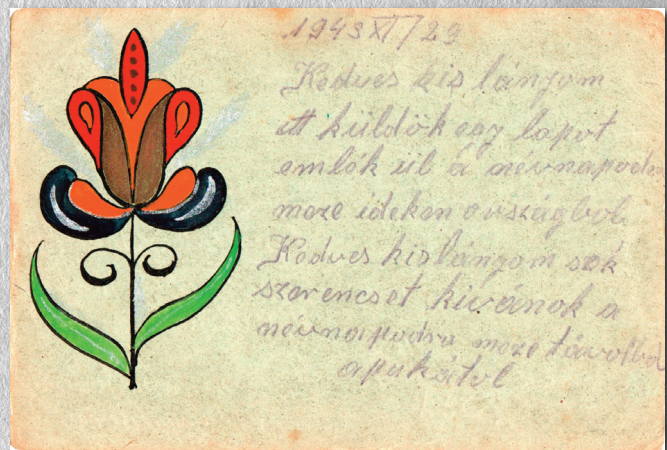 1943 XI/29
Kedves kis lányom
itt küldök egy lapot
emlék ül a névnapodra
meze ideken országbol
Kedves kislányom sok
szerencset kivánok a
névnapodra meze távolba
apukátol